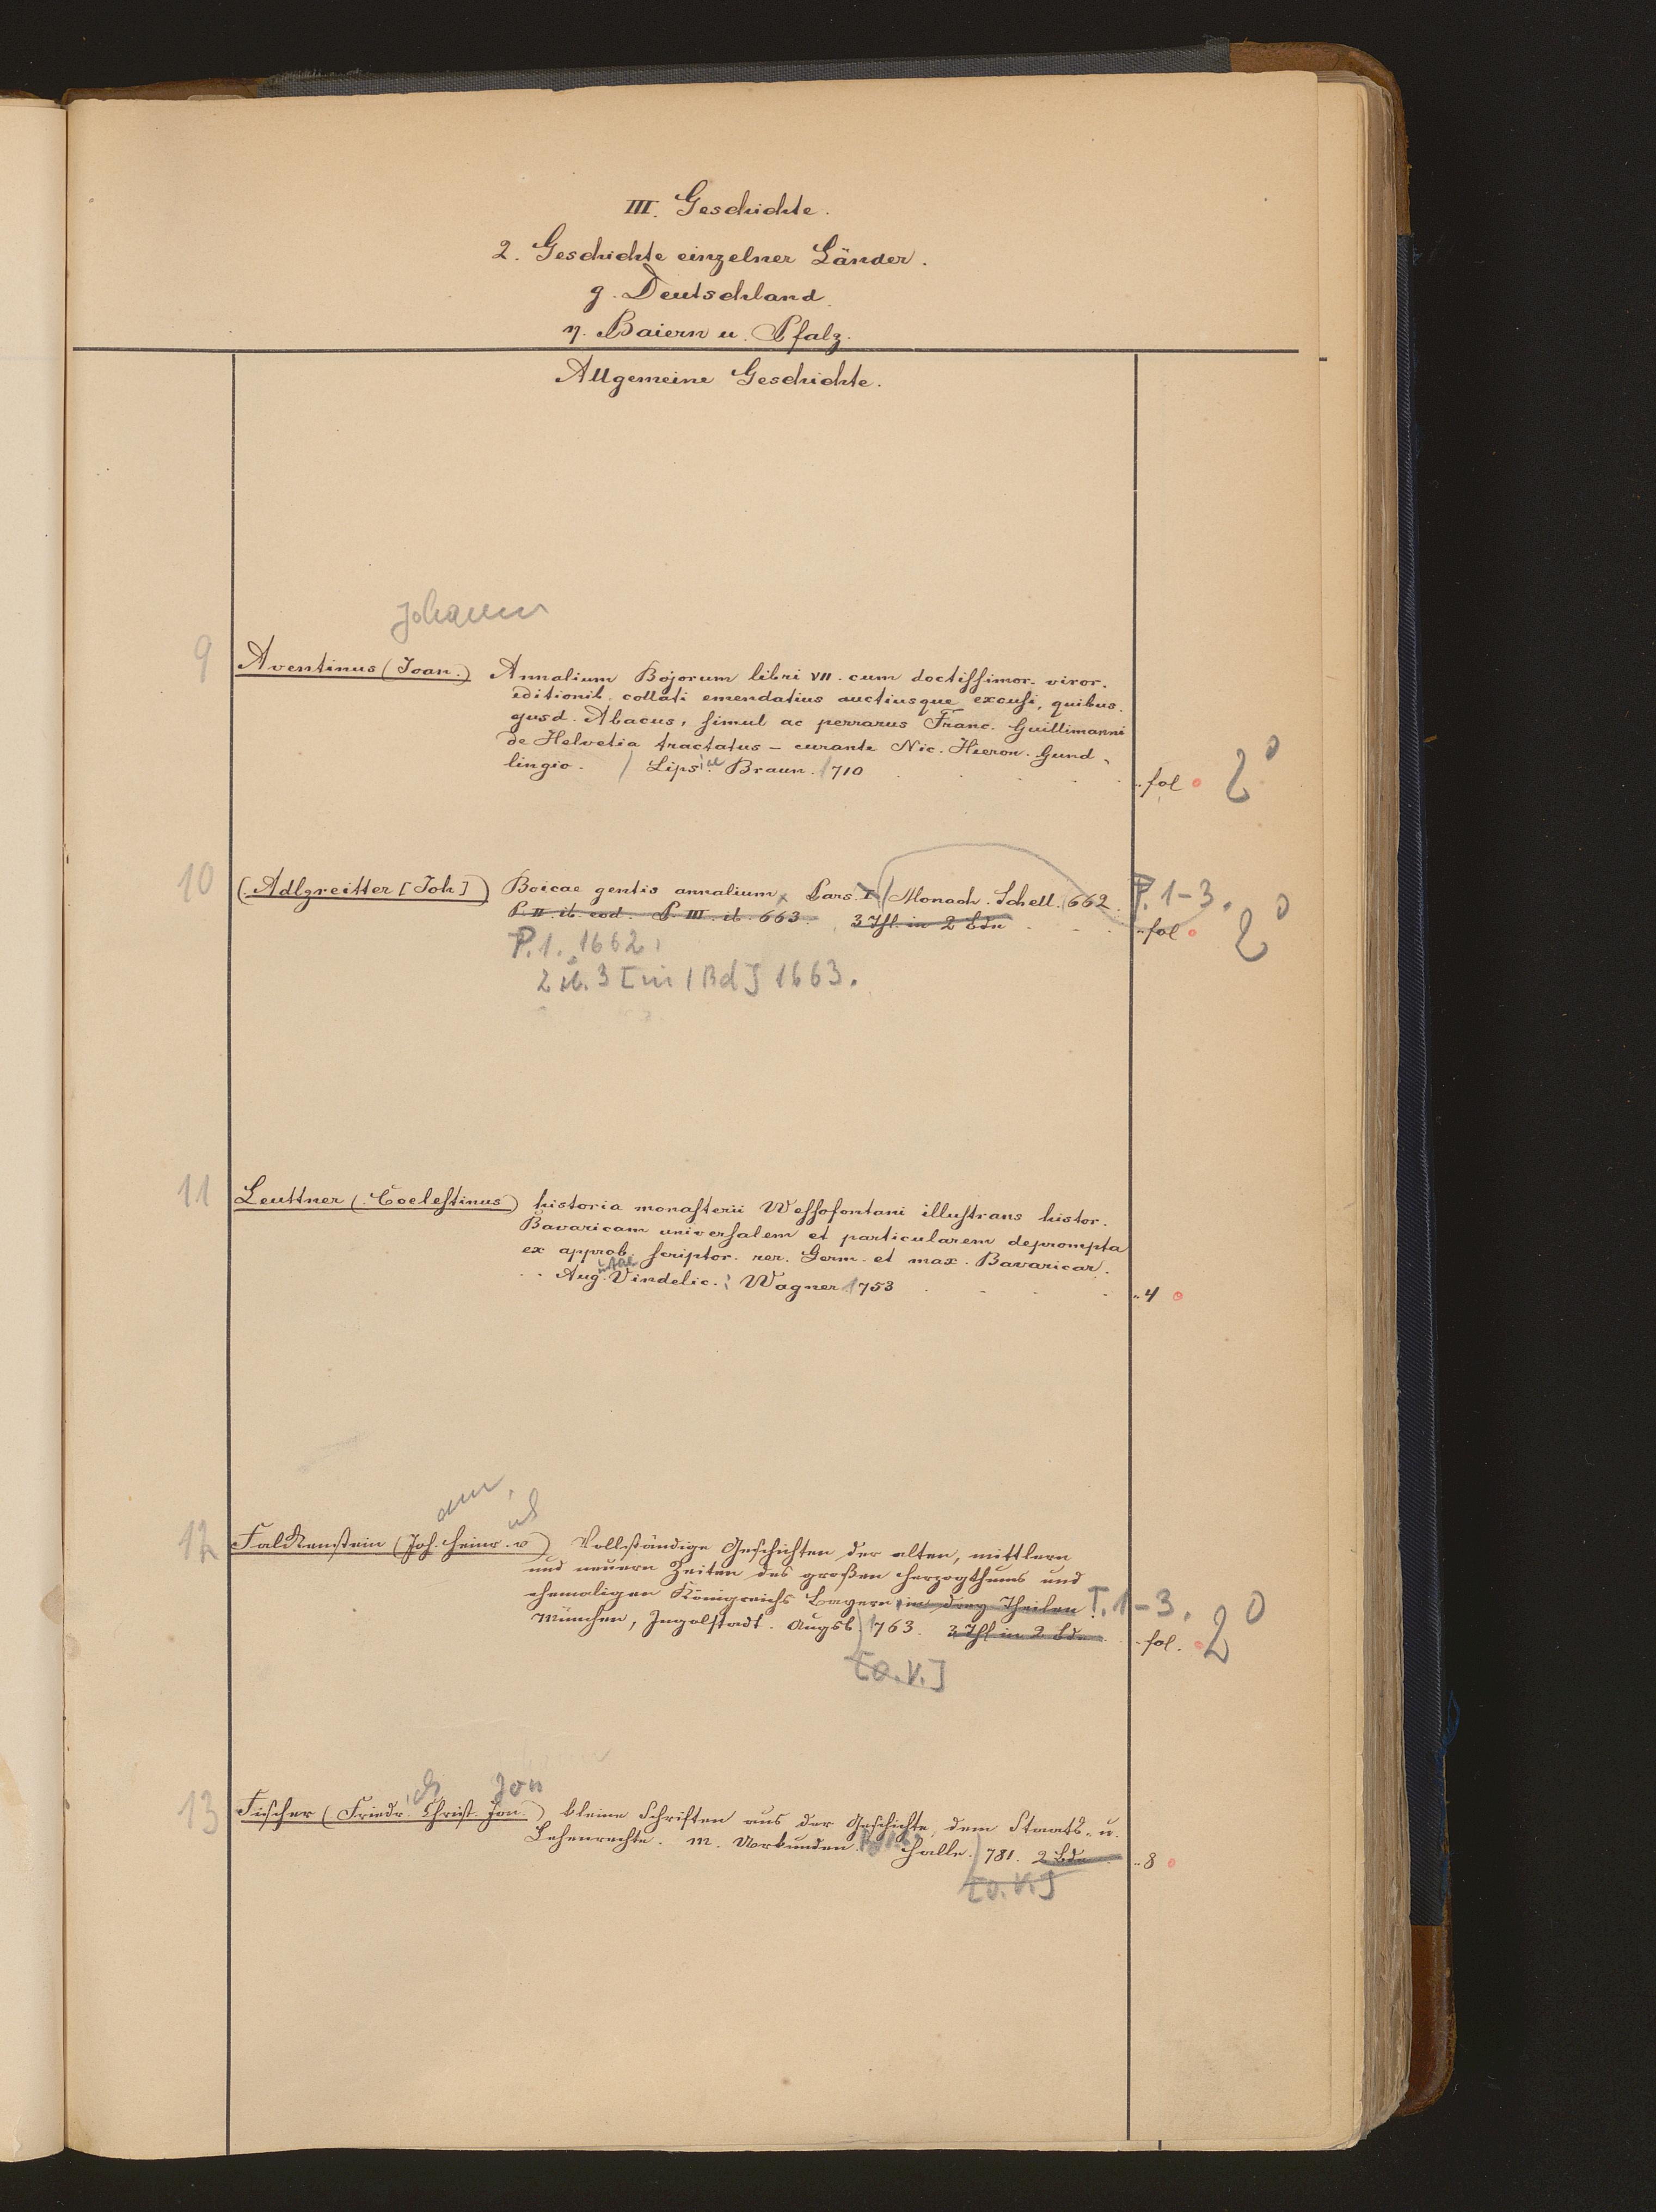 III. Geschichte.
2. Geschichte einzelner Länder.
g. Deutschland.
η. Baiern u. Pfalz.
Allgemeine Geschichte.
Johann
9 Aventinus (Joan.) Annalium Bojorum libri VII. cum doctissimor. viror.
editionib. collati emendatius auctiusque excusi, quibus.
ejusd. Abacus, simul ac perrarus Franc. Guillimanni
de Helvetia tractatus – curante Nic. Hieron. Gund-
lingio. Lipsiae Braun. 1710 fol 2°
10 (Adlzreitter [Joh]) Boicae gentis annalium Pars. I Monach. Schell. 1662. P. 1-3.
P. II. ib. eod. P. III. ib. 663. 3 Thl. in 2 Bdn fol 2°
P. 1. 1662.
2 u. 3 [in 1 Bd] 1663.
11 Leuttner (Coelestinus) historia monasterii Wessofontani illustrans histor.
Bavaricam universalem et particularem deprompta
ex approb. scriptor. rer. Germ. et max. Bavaricar.
Augustae Vindelic. Wagner 1753 4
ann, ich
12 Falckenstein (Joh. Heinr. v) Vollständige Geschichten der alten, mittlern
und neuern Zeiten des großen Herzogthums und
ehemaligen Königreichs Bayern in drey Theilen T. 1-3.
München, Ingolstadt. Augsb. 1763. 3 Thl in 2 Bdn. fol. 2°
[o. V.]
ch Jon
13 Fischer (Friedr. Christ. Jon.) kleine Schriften aus der Geschichte, dem Staats- u.
Lehenrechte. m. Urkunden. Halle. 781. 2 Bde 8
[o. V.]